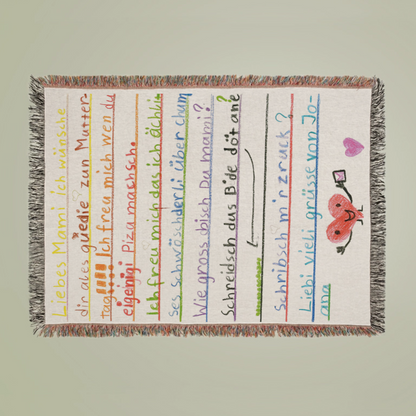 Liebes Mami ich wünsche
dir alles guedie zun Mutter-
tag Ich freu mich wen du
eigenigi Piza machsch.
Ich freu mich das ich ächli
ses schwöschderli über chum
Wie gross bisch Du mami?
Schreidsch das Bide döt ane?
Schribsch mir zruck?
Liebi vieli grüsse von Jo-
ana